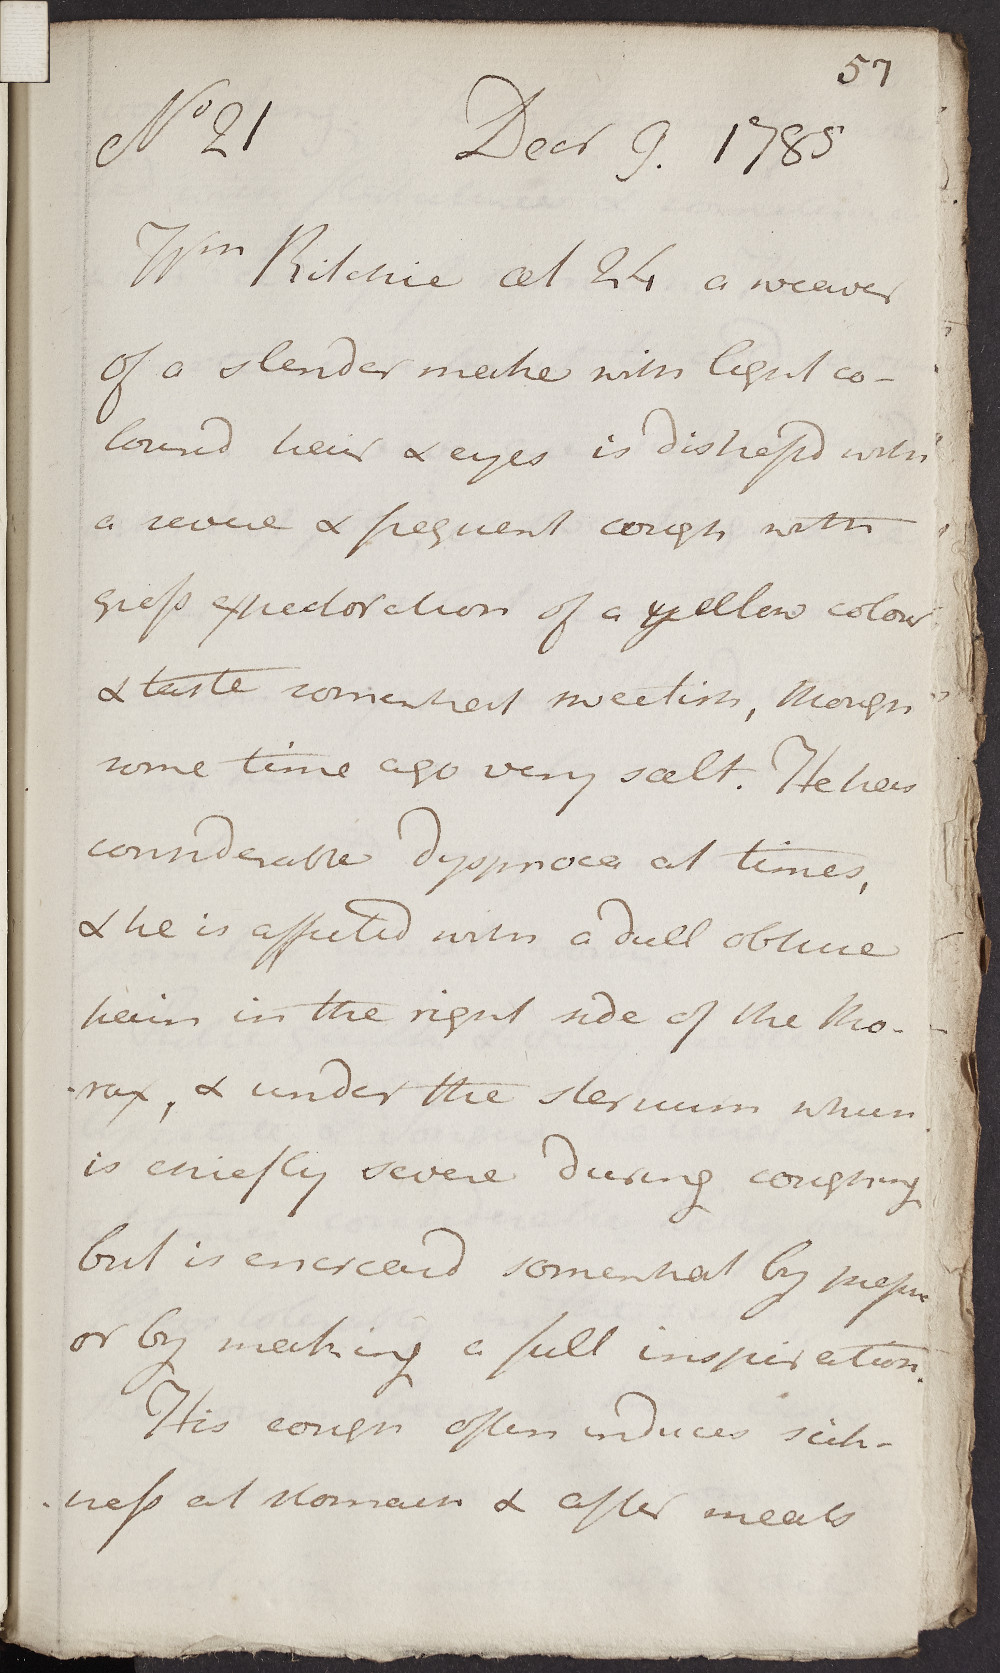 57
No 21 Decr 9. 1785
Wm Ritchie æt 24 a weaver
of a slender make with light co-
lourd hair & eyes is distressd with
a severe & frequent cough with
great expectoration of a yellow colour
& taste somewhat sweetish, though
some time ago very salt. He has
considerable dyspnoea at times,
& he is affected with a dull obtuse
pain in the right side of the tho-
-rax, & under the sternum which
is chiefly severe during coughing
but is encreasd somewhat by pressure
or by making a full inspiration.
His cough often induces sick-
-ness at stomach & after meals